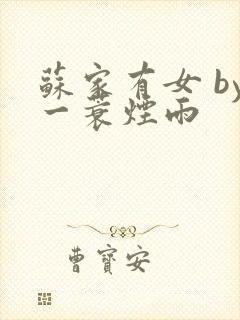 蘇家有女 by
一蓑煙雨
曹寶安